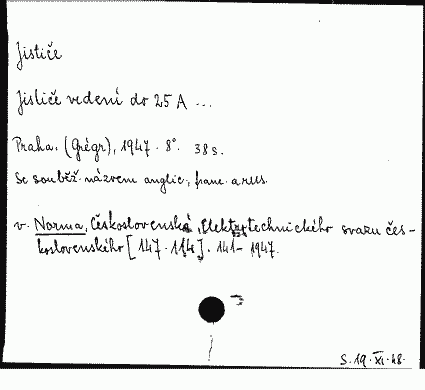 Jističe
Jističe vedení do 25 A ...
Praha. (Grégr), 1947. 8°. 38 s.
Se souběž. názvem anglic., franc. a rus.
v. Norma, Československá, Elektrotechnického svazu čes-
koslovenského [147. 114]. 141- 1947.
S. 19. XI. 48.